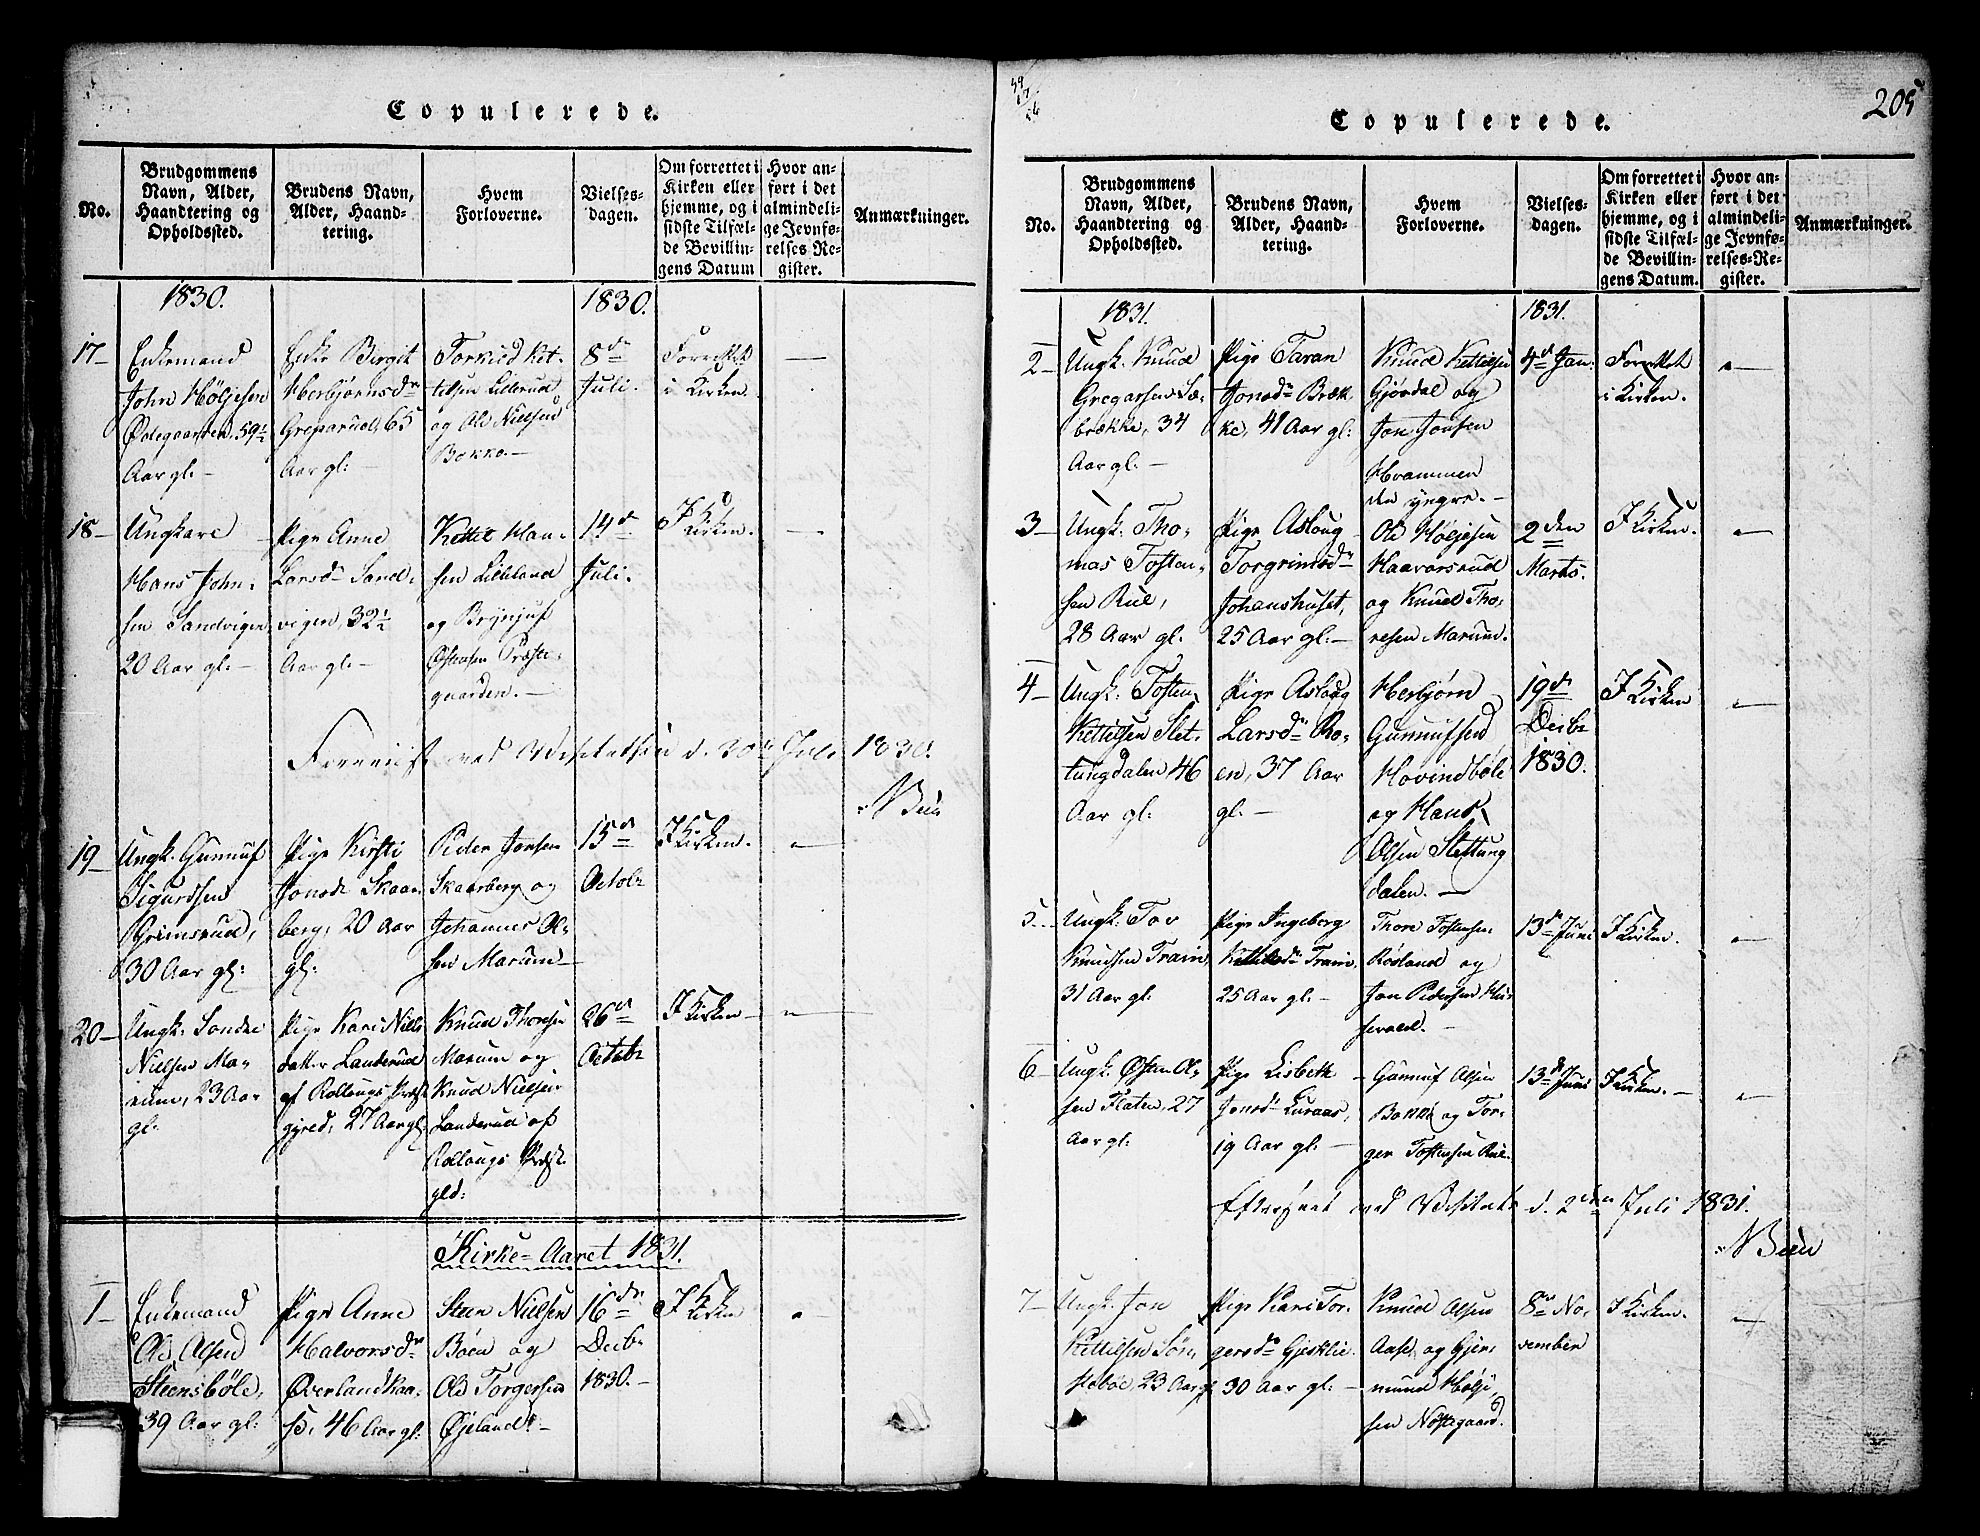 Copulerede.
No.
Brudgommens
Navn, Alder,
Haandtering og
Opholdssted.
Brudens Navn,
Alder, Haand-
tering.
Hvem
Forloverne.
Vielses-
dagen.
Om forrettet i
Kirken eller
hjemme, og i
sidste Tilfæl-
de Bevillin-
gens Datum
Hvor an-
ført i det
almindeli-
ge Jevnfø-
relses-Re-
gister.
Anmærkninger.
1830.
1830.
17-
Enkemand
John Höljesen
Ødegaarden. 59½
Aar gl. -
Enke Birgit
Herbjörnsdr
Greparud, 65
Aar gl: -
Torkild Ket-
tilsen Liderud
og Ole Nielsen
Bokko. -
8de
Juli.
Forrettet
i Kirken.
18-
Ungkarl
Hans John-
sen Sandvigen
20 Aar gl. -
Pige Anne
Larsdr Sand-
vigen, 32½
Aar gl. -
Kettil Han-
sen Lileland
og Brynjuf
Østensen Præste-
gaarden. -
14de
Juli.
I Kirken.
ved Visitatsen d. 20de Juli 1830.
N Bull
19-
Ungk. Gunnuf
Sigurdsen
Grimsrud,
30 Aar gl:
Pige Kirsti
Jonsdr Skaar-
berg, 20 Aar
gl:
Peder Jonsen
Skaarberg og
Johannes Ol-
sen Marum -
15de
Octobr
I Kirken.
20-
Ungk. Sondre
Nielsen Ma-
rum, 23 Aar
gl.
Pige Kari Niels
datter Landerud
af Rollougs Præste
gjeld, 27 Aar gl:
Knud Thoresen
Marum og
Knud Nielsen
Landerud af
Rollougs Præste
gld:
26de
Octobr
I Kirken -
Kirke-Aaret 1831.
1-
Enkemand
Ole Olsen
Steensböle,
39 Aar gl:
Pige Anne
Halvorsdr
Øverland
46 Aar gl:
Steen Nielsen
Böen og
Ole Torgersen
Øyeland. -
16de
Decbr
1830. -
I Kirken
205
Copulerede.
No.
Brudgommens
Navn, Alder,
Haandtering og
Opholdssted.
Brudens Navn,
Alder, Haand-
tering.
Hvem
Forloverne.
Vielses-
dagen.
Om forrettet i
Kirken eller
hjemme, og i
sidste Tilfæl-
de Bevillin-
gens Datum.
Hvor an-
ført i det
almindeli-
ge Jevnfø-
relses-Re-
gister.
Anmærkninger.
1831.
1831.
2-
Ungk. Knud
Gregarsen Sæ-
brække, 34
Aar gl. -
Pige Taran
Jonsdr Bræk-
ke, 41 Aar gl:
Knud Kettilsen
Gjördal og
Jon Jonsen
Hvammen
den yngre. -
4de Jan:
Forrettet
i Kirken.
3-
Ungk. Tho-
mas Tosten-
sen Rue,
28 Aar gl.
Pige Asloug
Torgrimsdr
Johanshuset,
25 Aar gl: -
Ole Höljesen
Haavorsrud
og Knud Tho-
resen Marum.
2den
Marts.
I Kirken.
4-
Ungk. Tosten
Kettilsen Slet-
tungdalen 46
Aar gl:
Pige Aslaug
Larsdr Ro-
en, 37 Aar
gl. -
Herbjörn
Gunnufsen
Hovindböle
og Hans
Olsen Slettung
dalen. -
19de
Decbr
1830.
I Kirken
5-
Ungk. Tov
Knudsen Traim,
31 Aar gl.
Pige Ingeborg
Kittilsdr Traim,
25 Aar gl. -
Thore Tostensen
Rösland og
Jon Pedersen Hus
13de Juni
I Kirken.
6-
Ungk. Østen Ol-
sen Flaten, 27
Aar gl:
Pige Lisbeth
Jonsdr Luraas,
19 Aar gl: -
Gunnuf Olsen
Bokko og Tor-
ger Tostensen Rue.
13de Juni
I Kirken. -
Efterseet ved Visitats d. 2den Juli 1831.
N Bull
7-
Ungk. Jon
Kittilsen Sön-
steböe, 23 Aar gl
Pige Kari Tor-
gersdr
30 Aar gl: -
Knud Olsen
Aase, og Gjer-
mund Hölje-
sen Nöstegaard.
8de No-
vember
I Kirken.